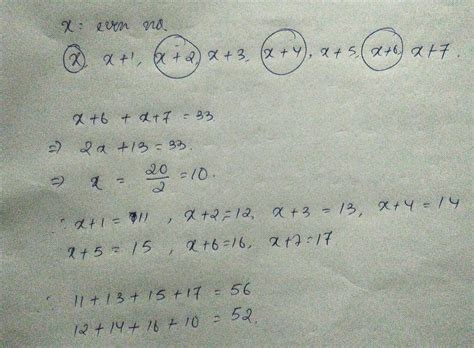 x = even no.
x, x+1, x+2, x+3, x+4, x+5, x+6, x+7.
x+6 + x+7 = 33
⇒ 2x + 13 = 33.
⇒ x = 20/2 = 10.
∴ x+1 = 11, x+2 = 12, x+3 = 13, x+4 = 14
x+5 = 15, x+6 = 16, x+7 = 17
∴ 11 + 13 + 15 + 17 = 56
12 + 14 + 16 + 10 = 52.